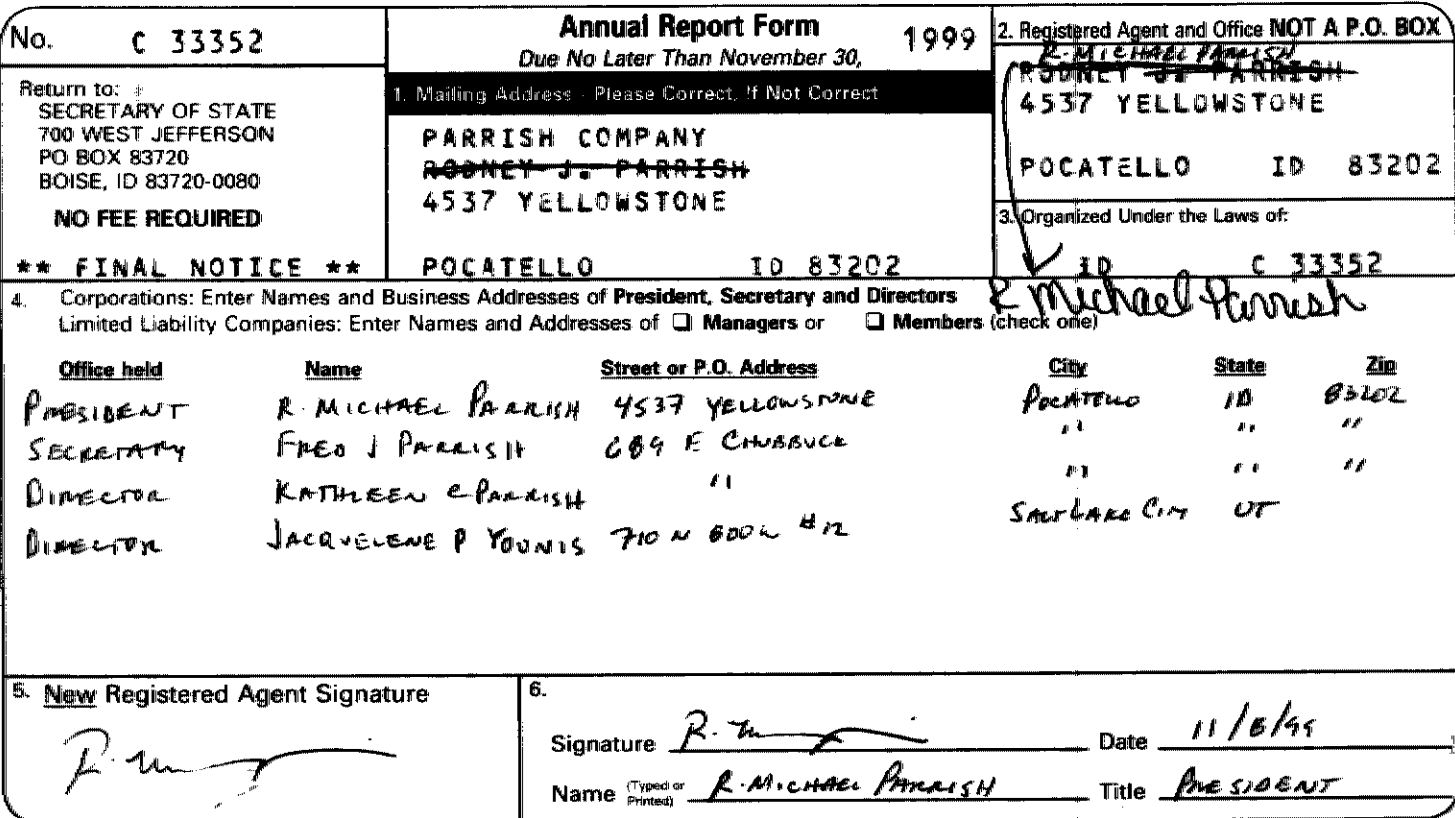 No. C 33352
Return to:
SECRETARY OF STATE
700 WEST JEFFERSON
PO BOX 83720
BOISE, ID 83720-0080
NO FEE REQUIRED
** FINAL NOTICE **
Annual Report Form 1999
Due No Later Than November 30,
1. Mailing Address - Please Correct, If Not Correct
PARRISH COMPANY
RODNEY J. PARRISH
4537 YELLOWSTONE
POCATELLO ID 83202
2. Registered Agent and Office NOT A P.O. BOX
R. MICHAEL PARRISH
RODNEY J. PARRISH
4537 YELLOWSTONE
POCATELLO ID 83202
3. Organized Under the Laws of:
ID C 33352
R Michael Parrish
4. Corporations: Enter Names and Business Addresses of President, Secretary and Directors
Limited Liability Companies: Enter Names and Addresses of ☐ Managers or ☐ Members (check one)
Office held Name Street or P.O. Address City State Zip
PRESIDENT R. MICHAEL PARRISH 4537 YELLOWSTONE POCATELLO ID 83202
SECRETARY FRED J PARRISH 689 E CHUBBUCK " " "
DIRECTOR KATHLEEN C PARRISH " " " "
DIRECTOR JACQUELENE P YOUNIS 710 N 600 W #12 SALT LAKE CITY UT
5. New Registered Agent Signature
6.
Signature Date 11/8/99
Name (Typed or Printed) R. MICHAEL PARRISH Title PRESIDENT